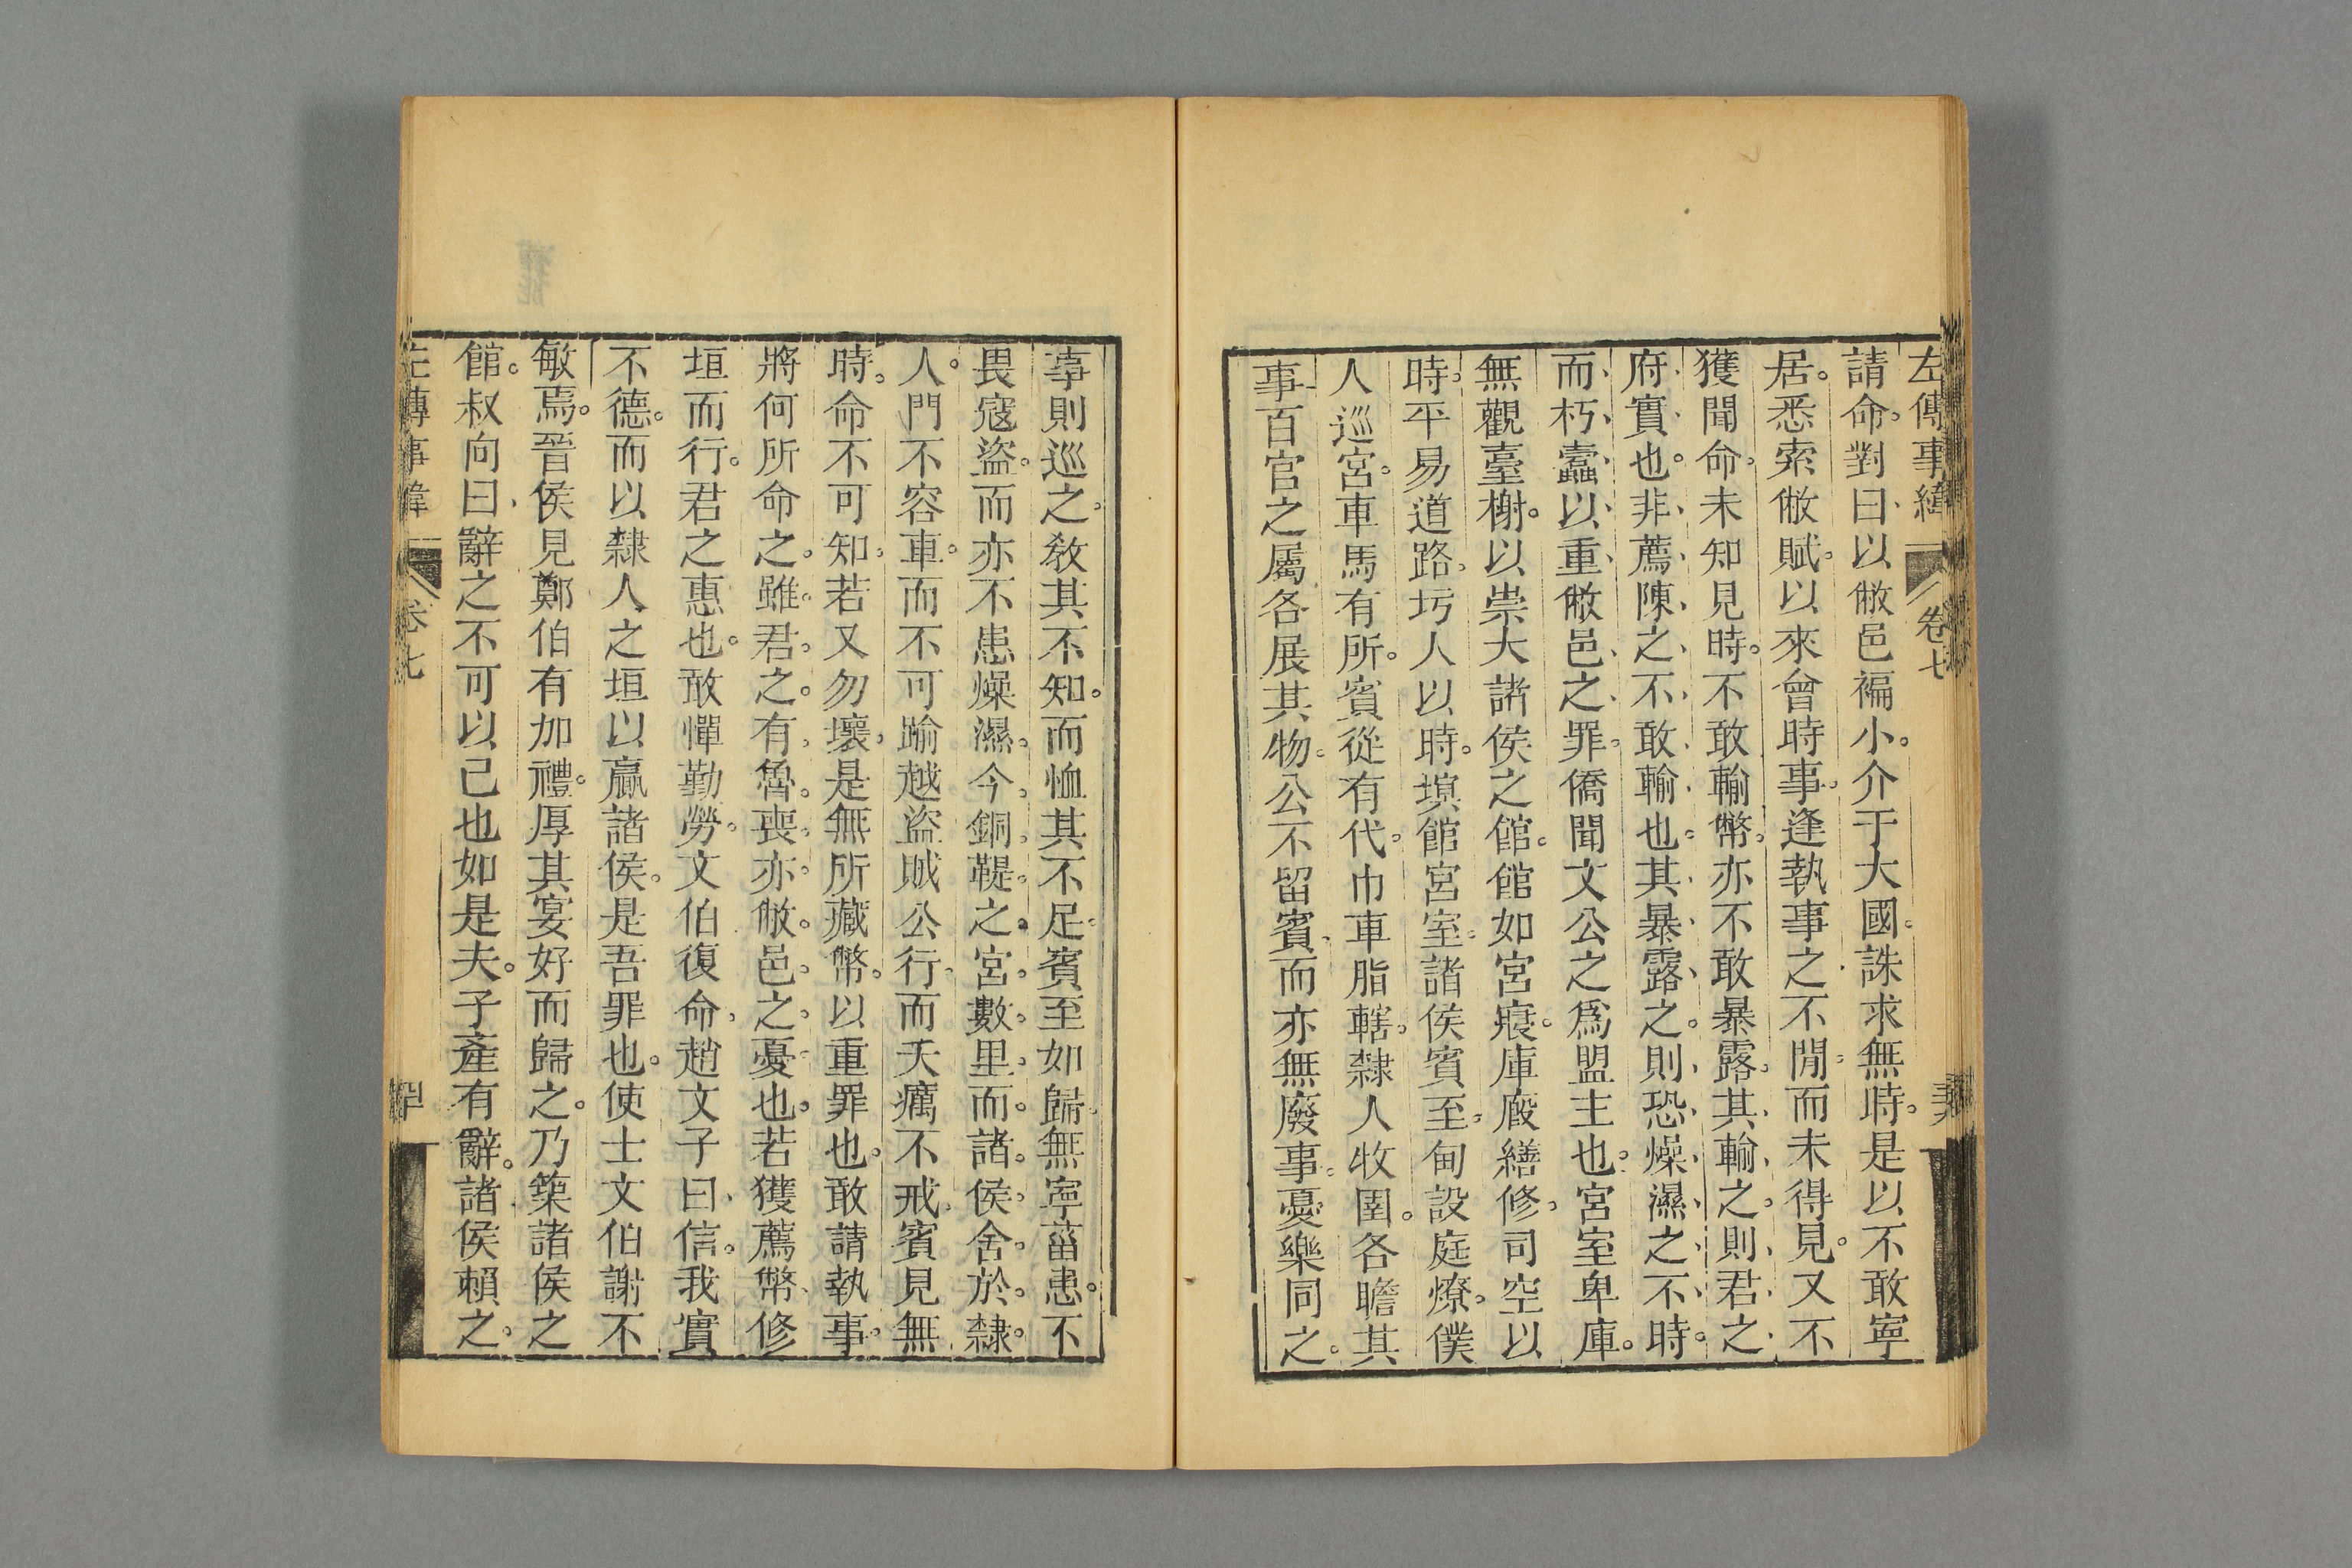 左傳事緯 卷七
請命對曰以敝邑褊小介于大國誅求無時是以不敢寧
居悉索敝賦以來會時事逢執事之不閒而未得見又不
獲聞命未知見時不敢輸幣亦不敢暴露其輸之則君之
府實也非薦陳之不敢輸也其暴露之則恐燥濕之不時
而朽蠹以重敝邑之罪僑聞文公之爲盟主也宮室卑庳
無觀臺榭以崇大諸侯之館館如宮寢庫廄繕修司空以
時平易道路圬人以時塓館宮室諸侯賓至甸設庭燎僕
人巡宮車馬有所賓從有代巾車脂轄隸人牧圉各瞻其
事百官之屬各展其物公不留賓而亦無廢事憂樂同之
事則巡之敎其不知而恤其不足賓至如歸無寧菑患不
畏寇盜而亦不患燥濕今銅鞮之宮數里而諸侯舍於隸
人門不容車而不可踰越盜賊公行而天癘不戒賓見無
時命不可知若又勿壞是無所藏幣以重罪也敢請執事
將何所命之雖君之有魯喪亦敝邑之憂也若獲薦幣修
垣而行君之惠也敢憚勤勞文伯復命趙文子曰信我實
不德而以隸人之垣以贏諸侯是吾罪也使士文伯謝不
敏焉晉侯見鄭伯有加禮厚其宴好而歸之乃築諸侯之
館叔向曰辭之不可以已也如是夫子產有辭諸侯賴之
左傳事緯 卷七